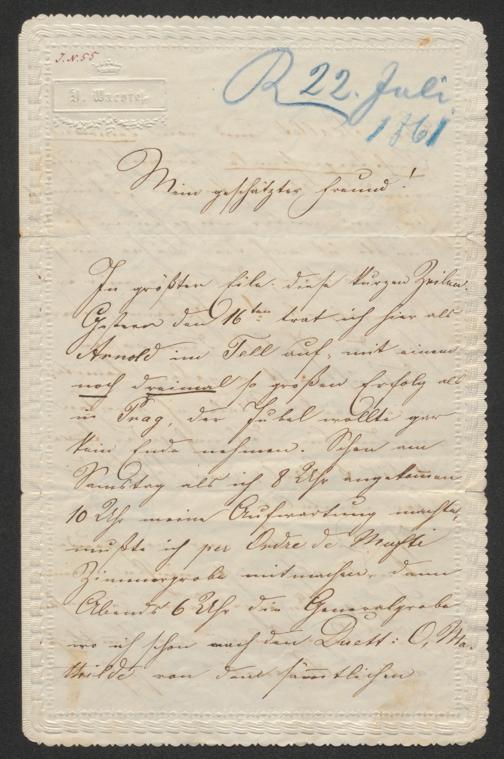 J. N. 55
R 22. Juli
1861
F. Wacotef
Mein geschätzter Freund!
In größter Eile diese kurzen Zeilen.
Gestern den 16ten trat ich hier als
Arnold im Tell auf, mit einem
noch dreimal so großen Erfolg als
in Prag, der Jubel wollte gar
kein Ende nehmen. Schon am
Samstag als ich 8 Uhr angekommen
10 Uhr meine Aufwartung machte,
mußte ich per Ordre de Mufti
Zimmerprobe mitmachen, dann
Abends 6 Uhr die Generalprobe
wo ich schon nach den Duett: O, Ma-
thilde von dem sämmtlichen